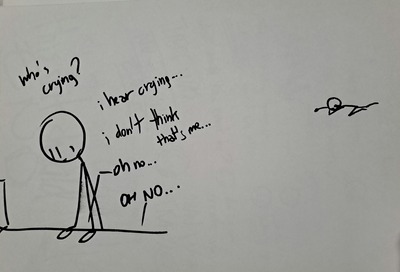 who's
crying?
i hear crying...
i don't think
that's me...
oh no...
OH NO...